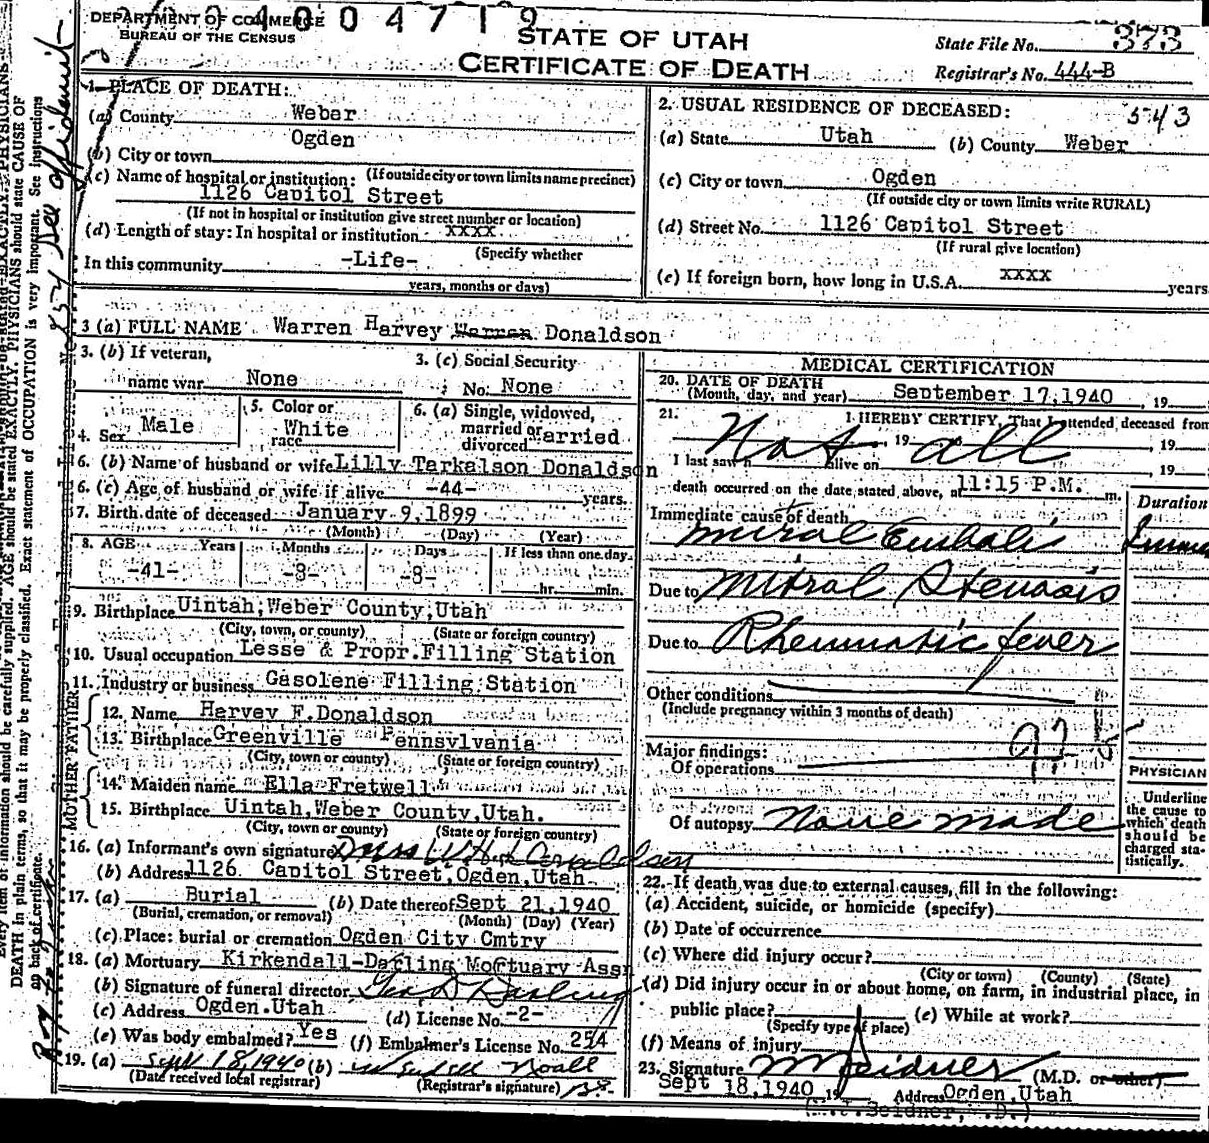 DEPARTMENT OF COMMERCE
BUREAU OF THE CENSUS
0 4 0 0 4 7 1 9
STATE OF UTAH
CERTIFICATE OF DEATH
State File No. 373
Registrar's No. 444-B
1. PLACE OF DEATH:
(a) County Weber
Ogden
(b) City or town
(If outside city or town limits name precinct)
(c) Name of hospital or institution:
1126 Capitol Street
(If not in hospital or institution give street number or location)
(d) Length of stay: In hospital or institution xxxx
(Specify whether
In this community -Life-
years, months or days)
2. USUAL RESIDENCE OF DECEASED: 543
(a) State Utah (b) County Weber
(c) City or town Ogden
(If outside city or town limits write RURAL)
(d) Street No. 1126 Capitol Street
(If rural give location)
(e) If foreign born, how long in U.S.A. xxxx years
3 (a) FULL NAME Warren Harvey Warren Donaldson
3. (b) If veteran,
name war None
3. (c) Social Security
No. None
4. Sex Male
5. Color or
race White
6. (a) Single, widowed,
married or
divorced Married
6. (b) Name of husband or wife Lilly Tarkelson Donaldson
6. (c) Age of husband or wife if alive -44- years.
7. Birth date of deceased January 9,1899
(Month) (Day) (Year)
8. AGE Years Months Days If less than one day
-41- -8- -8- hr. min.
9. Birthplace Uintah,Weber County,Utah
(City, town, or county) (State or foreign country)
10. Usual occupation Lesse & Propr.Filling Station
11. Industry or business Gasolene Filling Station
FATHER
12. Name Harvey F.Donaldson
13. Birthplace Greenville Pennsylvania
(City, town or county) (State or foreign country)
MOTHER
14. Maiden name Ella Fretwell
15. Birthplace Uintah,Weber County,Utah.
(City, town or county) (State or foreign country)
16. (a) Informant's own signature Donaldson
(b) Address 1126 Capitol Street,Ogden,Utah
17. (a) Burial (b) Date thereof Sept 21,1940
(Burial, cremation, or removal) (Month) (Day) (Year)
(c) Place: burial or cremation Ogden City Cmtry
18. (a) Mortuary Kirkendall-Darling Mortuary Assn
(b) Signature of funeral director Geo D Darling
(c) Address Ogden.Utah (d) License No. -2-
(e) Was body embalmed? Yes (f) Embalmer's License No. 254
19. (a) Sept 18,1940 (b) Wendell Noall
(Date received local registrar) (Registrar's signature)
MEDICAL CERTIFICATION
20. DATE OF DEATH
(Month, day, and year) September 17,1940, 19
21. I HEREBY CERTIFY, That I attended deceased from
Not at all
, 19 , 19
I last saw h alive on 19
death occurred on the date stated above, at 11:15 P.M. m.
Duration
Immediate cause of death
Mitral Stenosis
Due to
Due to Rheumatic fever
Other conditions
(Include pregnancy within 3 months of death)
Major findings:
Of operations
Of autopsy None made
PHYSICIAN
Underline
the cause to
which death
should be
charged sta-
tistically.
22. If death was due to external causes, fill in the following:
(a) Accident, suicide, or homicide (specify)
(b) Date of occurrence
(c) Where did injury occur?
(City or town) (County) (State)
(d) Did injury occur in or about home, on farm, in industrial place, in
public place? (e) While at work?
(Specify type of place)
(f) Means of injury
23. Signature Seidner (M.D. or other)
Sept 18,1940 19 Address Ogden,Utah
See affidavit
DEATH in plain terms, so that it may be properly classified. Exact statement of OCCUPATION is very important. See instructions
on back of certificate.